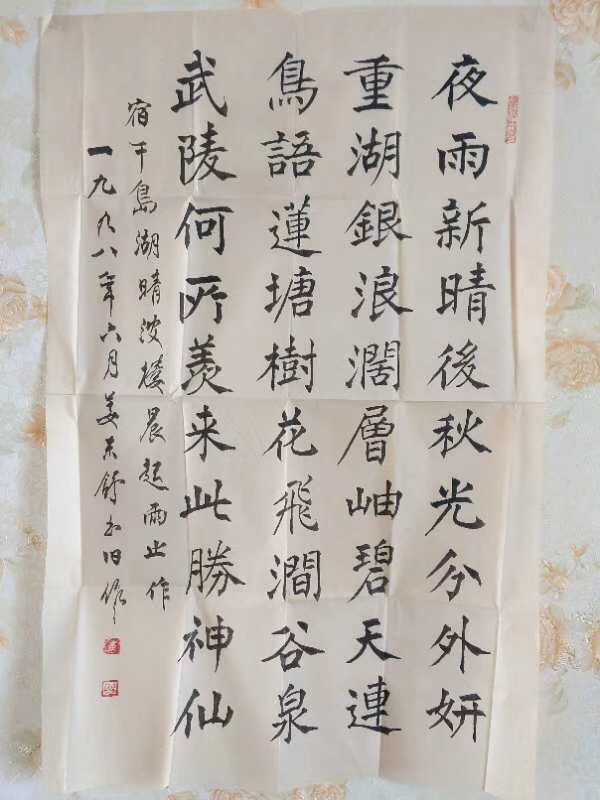 夜雨新晴後秋光分外妍
重湖銀浪濶層岫碧天連
鳥語蓮塘樹花飛澗谷泉
武陵何所羨来此勝神仙
宿千島湖晴波楼晨起雨止作
一九九八年六月姜东舒书旧作